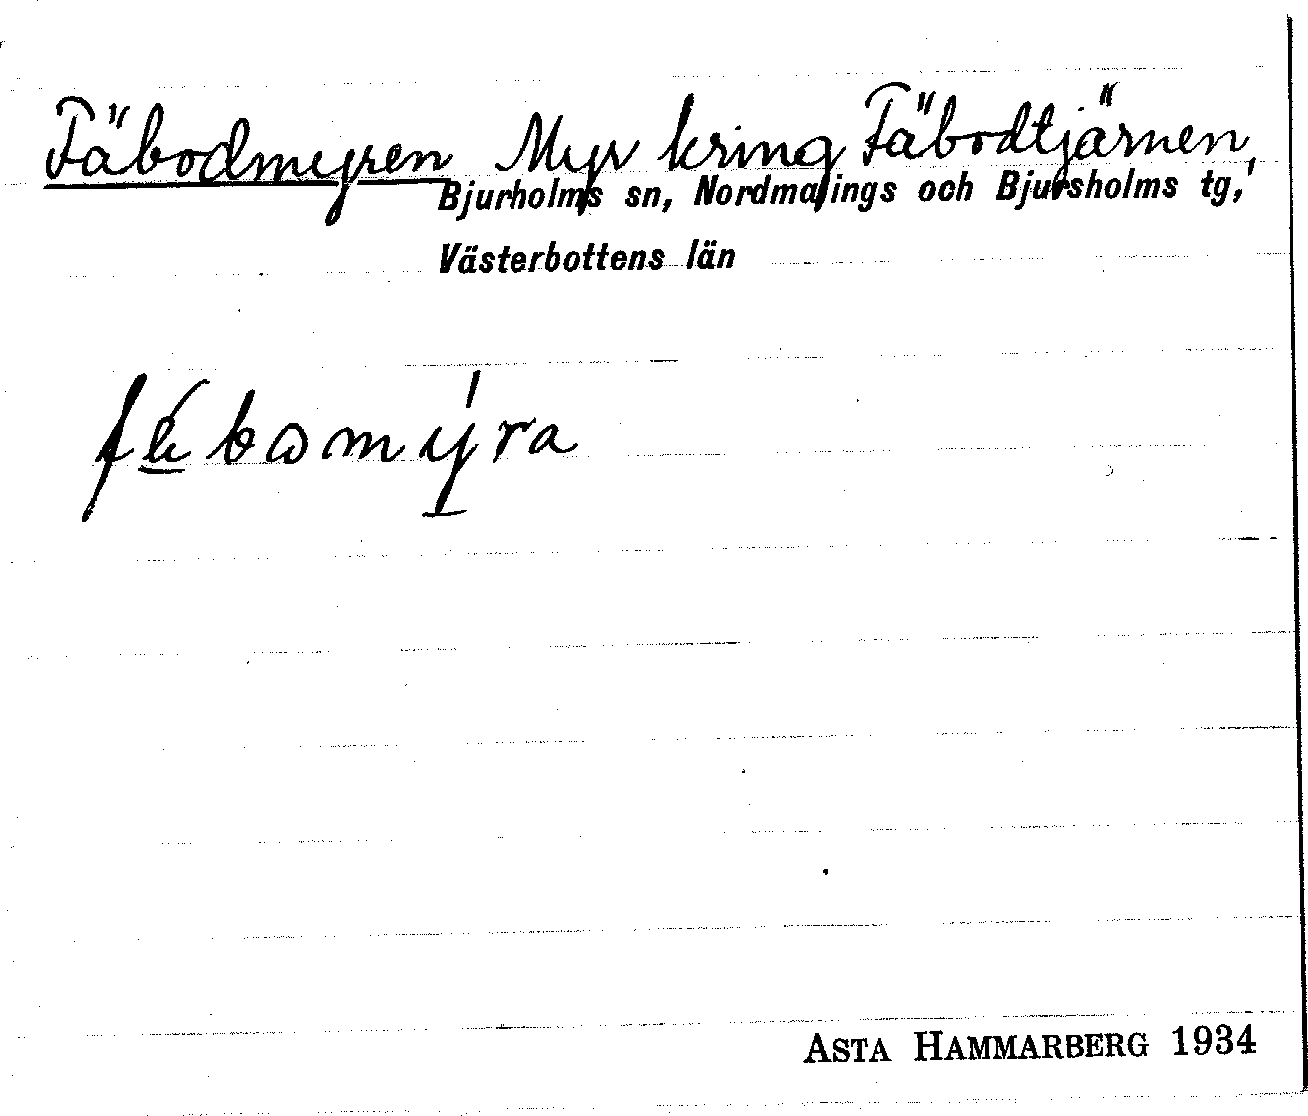 Fäbodmyren Myr kring Fäbodtjärnen,
Bjurholms sn, Nordmalings och Bjursholms tg,
Västerbottens län
fǽbɷmýra
ASTA HAMMARBERG 1934